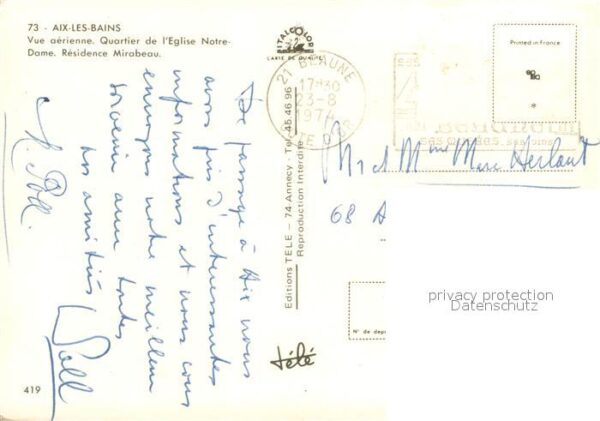 73 - AIX-LES-BAINS
Vue aérienne. Quartier de l'Eglise Notre-
Dame. Résidence Mirabeau.
ITALCOLOR
CARTE DE QUALITÉ
Printed in France
21 BEAUNE
17H30
23-8
1974
COTE D'OR
De passage à Aix nous
avons pris d'intéressantes
informations et nous vous
envoyons notre meilleur
souvenir avec toutes
nos amitiés
Editions TELE - 74-Annecy - Tel. 45.46.96
Reproduction Interdite
Mr et Mme Marc
68
N° de dépô
privacy protection
Datenschutz
télé
419